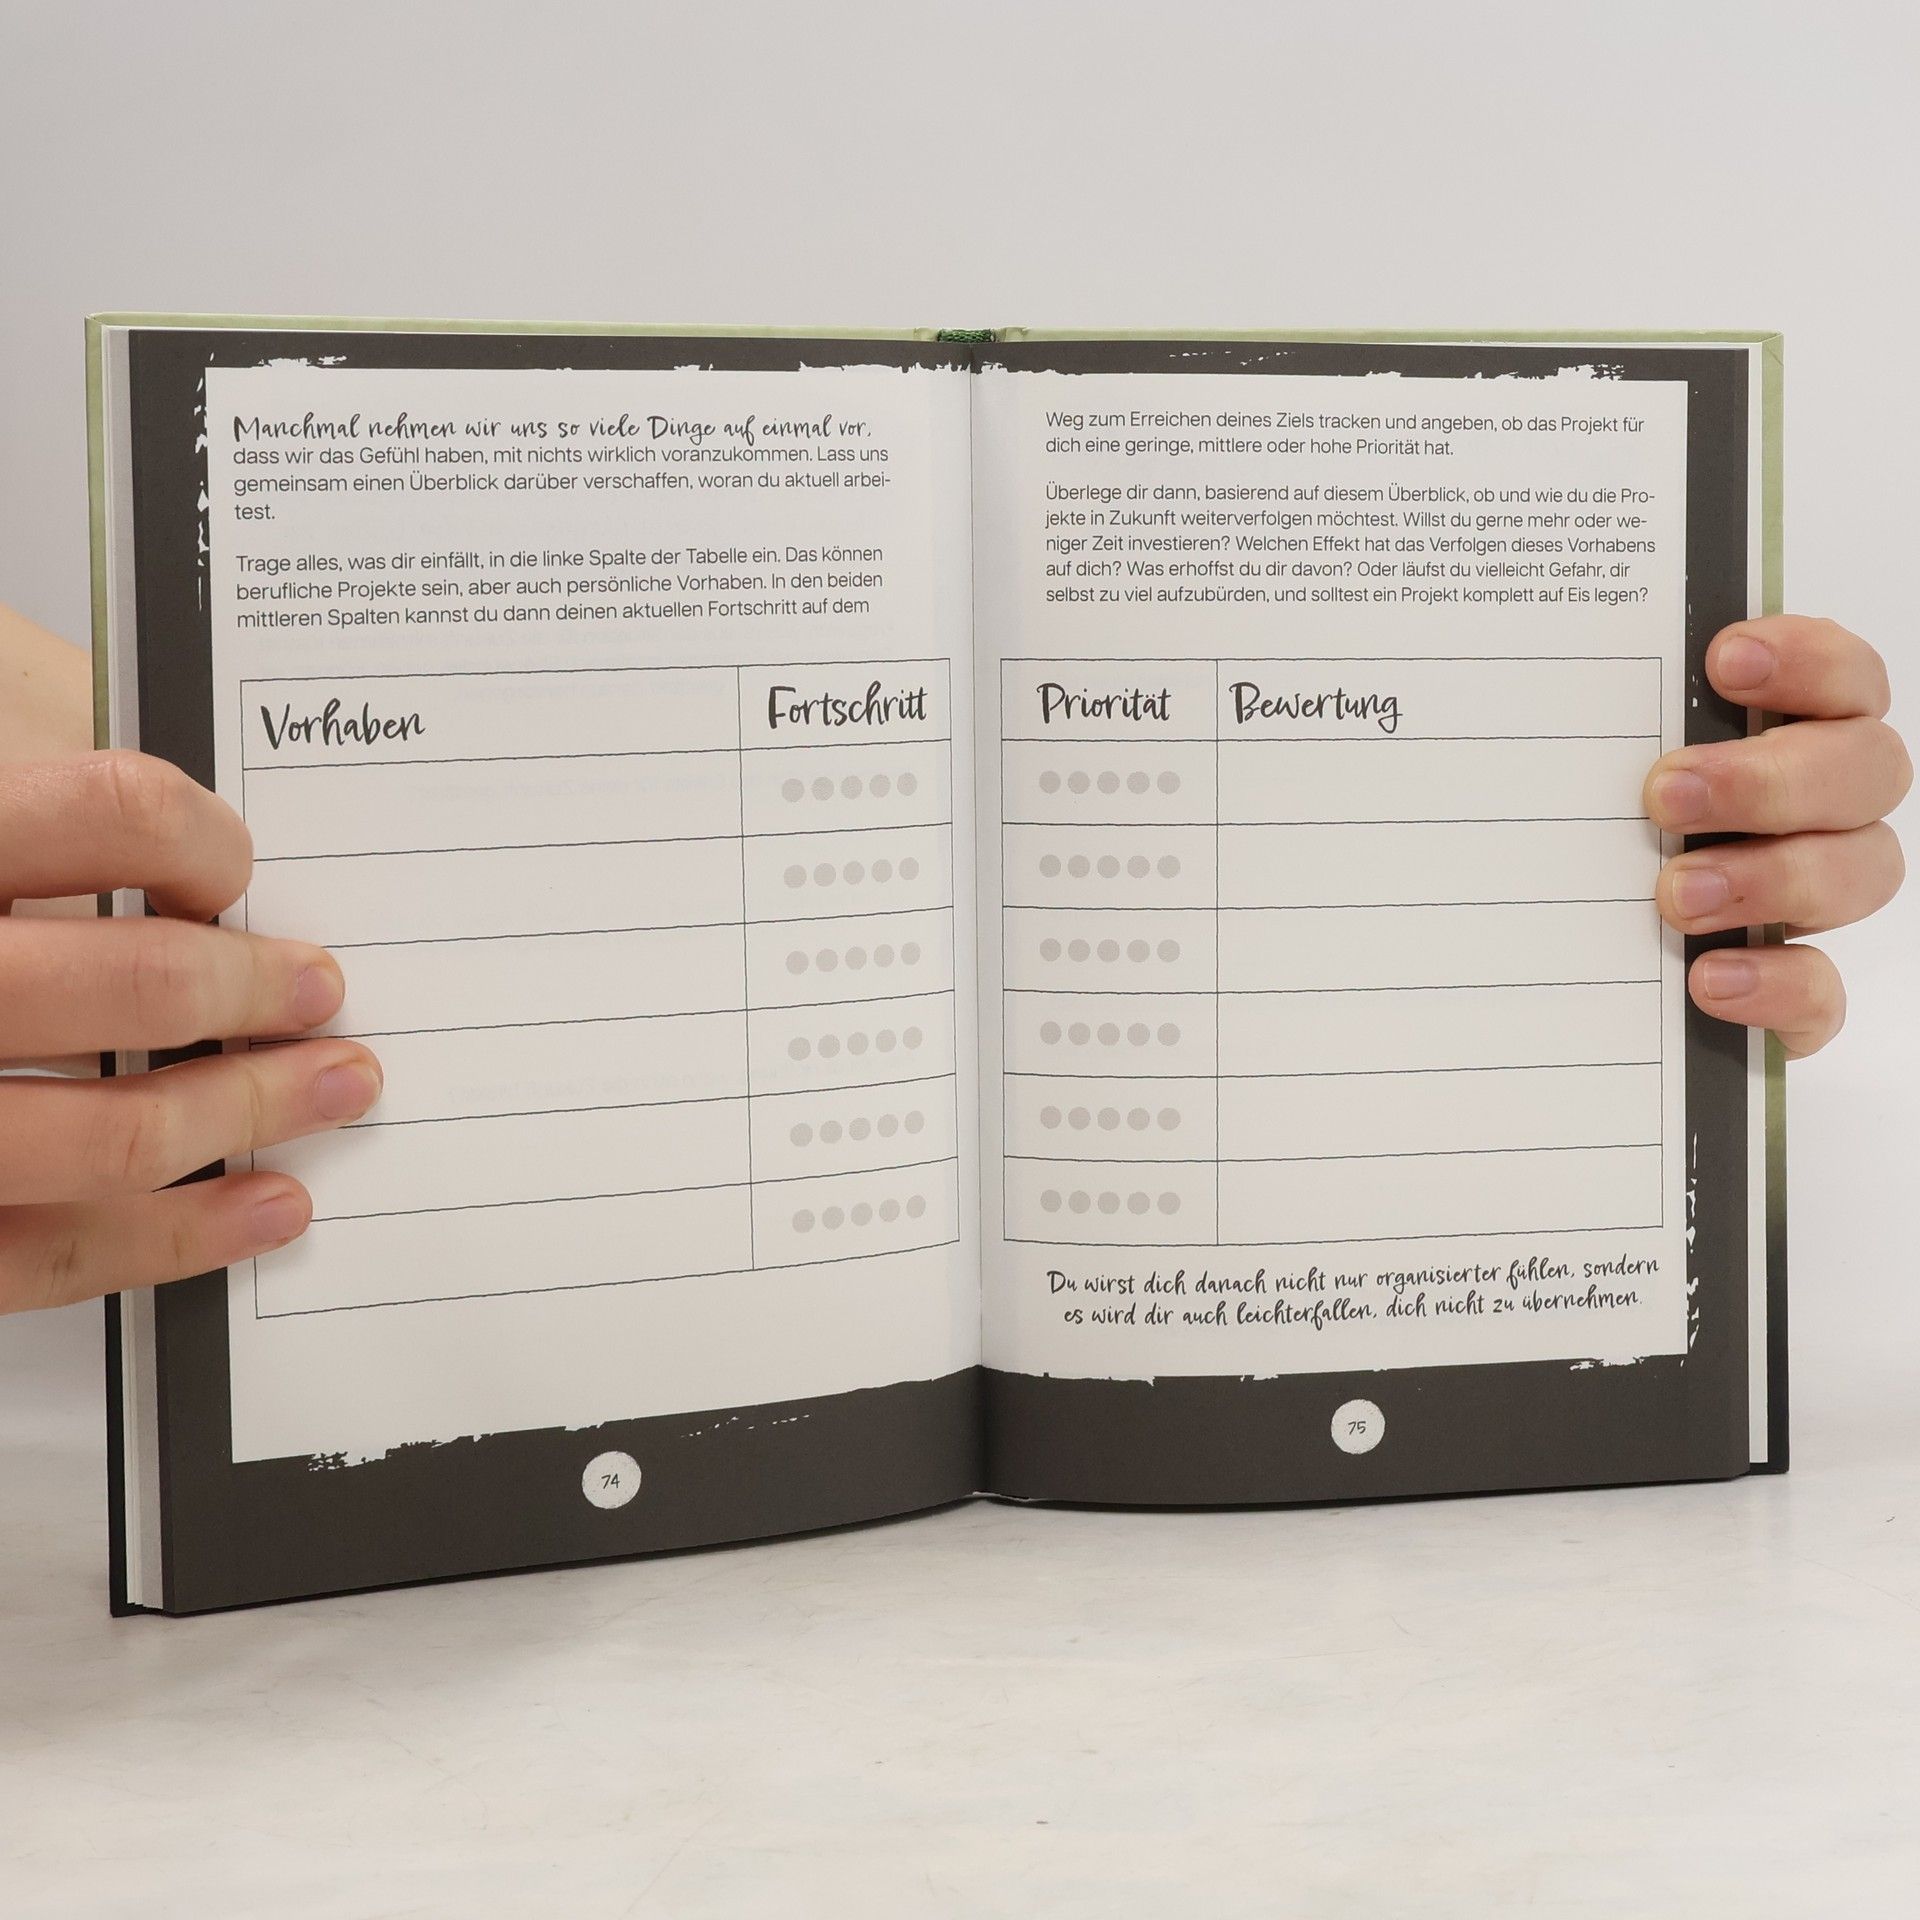 Manchmal nehmen wir uns so viele Dinge auf einmal vor,
dass wir das Gefühl haben, mit nichts wirklich voranzukommen. Lass uns
gemeinsam einen Überblick darüber verschaffen, woran du aktuell arbei-
test.
Trage alles, was dir einfällt, in die linke Spalte der Tabelle ein. Das können
berufliche Projekte sein, aber auch persönliche Vorhaben. In den beiden
mittleren Spalten kannst du dann deinen aktuellen Fortschritt auf dem
Vorhaben
Fortschritt
74
Weg zum Erreichen deines Ziels tracken und angeben, ob das Projekt für
dich eine geringe, mittlere oder hohe Priorität hat.
Überlege dir dann, basierend auf diesem Überblick, ob und wie du die Pro-
jekte in Zukunft weiterverfolgen möchtest. Willst du gerne mehr oder we-
niger Zeit investieren? Welchen Effekt hat das Verfolgen dieses Vorhabens
auf dich? Was erhoffst du dir davon? Oder läufst du vielleicht Gefahr, dir
selbst zu viel aufzubürden, und solltest ein Projekt komplett auf Eis legen?
Priorität
Bewertung
Du wirst dich danach nicht nur organisierter fühlen, sondern
es wird dir auch leichterfallen, dich nicht zu übernehmen.
75